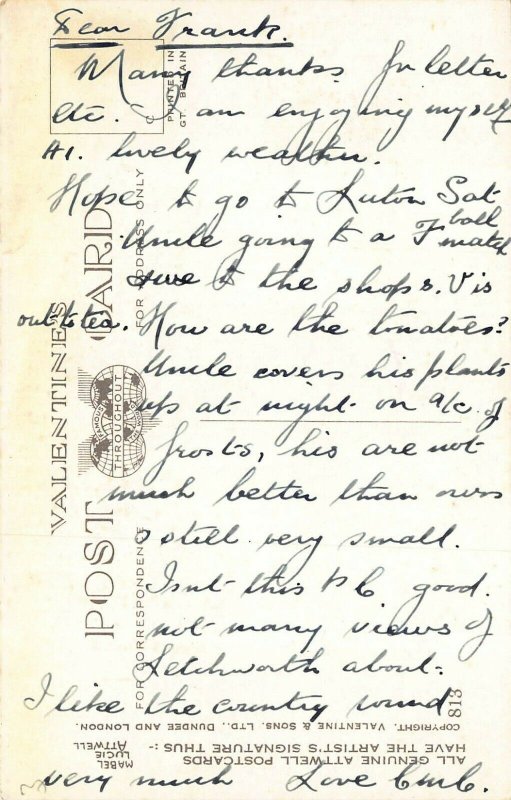 Dear Frank.
Many thanks for letter
etc. I am enjoying myself
A1. lovely weather.
Hope to go to Luton Sat
Uncle going to a F ball match
we to the shops. V is
out to tea. How are the tomatoes?
Uncle covers his plants
up at night on a/c. of
frosts, his are not
much better than ours
still very small.
Isnt this P C good.
not many views of
Letchworth about.
I like the country round
very much Love
PRINTED IN
GT. BRITAIN
VALENTINE'S
POST CARD
FAMOUS THROUGHOUT
FOR CORRESPONDENCE
FOR ADDRESS ONLY
813
COPYRIGHT. VALENTINE & SONS. LTD., DUNDEE AND LONDON.
ALL GENUINE ATTWELL POSTCARDS
HAVE THE ARTIST'S SIGNATURE THUS :-
MABEL
LUCIE
ATTWELL